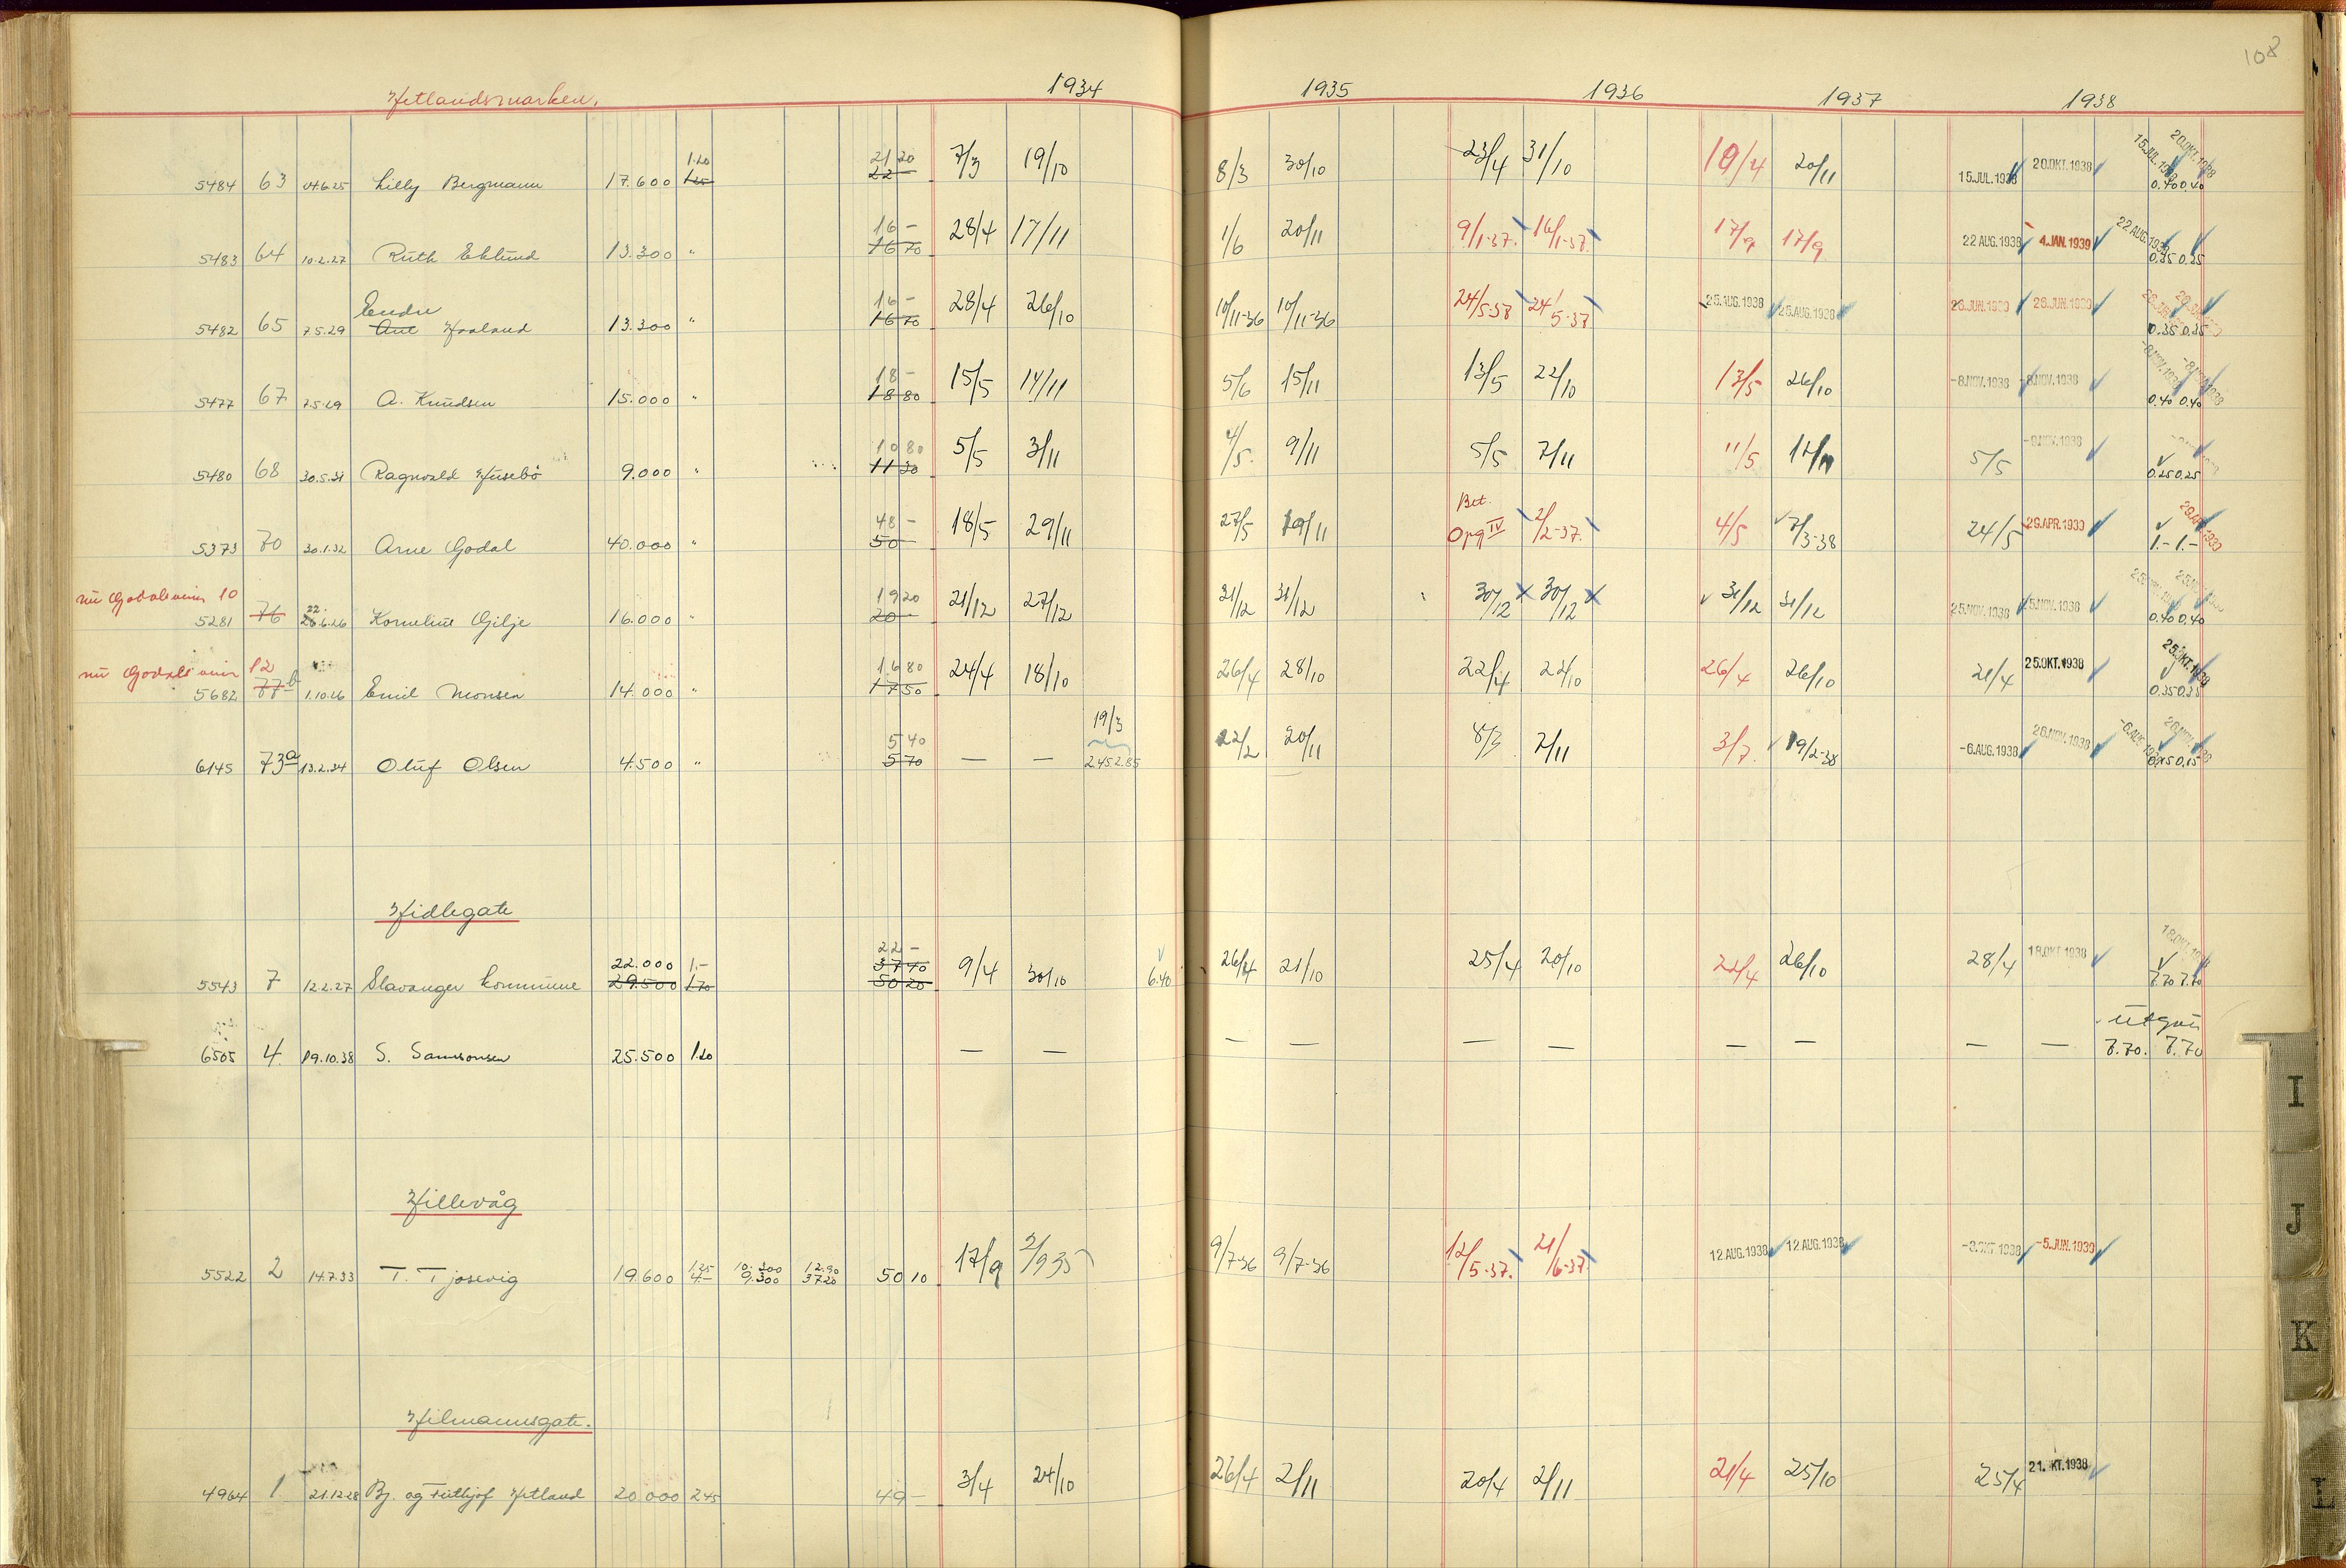 108
Hetlandsmarken. 1934 1935 1936 1937 1938
1.20 21 20 15.JUL.1938 20.OKT.1938
5484 63 Lilly Bergmann 17.600 1.25 22 — 7/3 19/10 8/3 30/10 23/4 31/10 19/4 20/11 15.JUL.1938 20.OKT.1938 0.40 0.40
16 — 22 AUG.1938
5483 64 10.2.27 Ruth Eklund 13.300 " 16 70 28/4 17/11 1/6 20/11 9/1-37. 16/1-37. 17/9 17/9 22 AUG.1938 4.JAN.1939 0.35 0.35
Endre 16 —
5482 65 7.5.29 Haaland 13.300 " 16 70 28/4 26/10 10/11-36 10/11-36 24/5-37 25.AUG.1938 25.AUG.1938 26.JUN.1939 26.JUN.1939 0.35 0.35
18 —
5477 67 7.5.29 A. Knudsen 15.000 " 18 80 15/5 14/11 5/6 15/11 13/5 22/10 13/5 26/10 -8.NOV.1938 -8.NOV.1938 0.40 0.40
10 80
5480 68 30.5.31 Ragnvald Husebö 9.000 " 11 30 5/5 3/11 4/5. 9/11 5/5 7/11 11/5 5/5 -9.NOV.1938 0.25 0.25
48 — Bet.
5373 70 30.1.32 Arne Godal 40.000 " 50 — 18/5 29/11 27/5 19/11 Opg IV 2/2-37. 4/5 7/3-38 24/5 29.APR.1939 1.- 1.-
nu Godalsveien 10 22. 19 20
5281 76 26.6.26 Korneline Gilje 16.000 " 20 — 21/12 27/12 31/12 31/12 30/12 30/12 31/12 31/12 25.NOV.1938 25.NOV.1938 0.40 0.40
nu Godalsveien 12 16 80 25.OKT.1938
5682 77b 1.10.26 Emil Monsen 14.000 " 17 50 24/4 18/10 26/4 28/10 22/4 22/10 26/4 26/10 21/4 25.OKT.1938 0.35 0.35
5 40 19/3
6145 73a 13.2.34 Oluf Olsen 4.500 " 5 70 — — 2452.85 22/2 20/11 8/3 7/11 3/7. 19/2-38 -6.AUG.1938 26.NOV.1938 0.15 0.15
Hidlegate
22.000 1.- 22 — 18.OKT.1938
37 40
5543 7 12.2.27 Stavanger kommune 29.500 1.70 50 20 9/4 30/10 6.40 26/4 21/10 25/4 20/10 22/4 26/10 28/4 18.OKT.1938 7.70 7.70
utgår
6505 4. 19.10.38 S. Samsonsen 25.500 1.20 — — — — — — — — — — 7.70. 7.70
Hillevåg
1.25 10.300 12.90
5522 2 14.7.33 T. Tjosevig 19.600 4.- 9.300 37.20 50 10 17/9 2/9 35 9/7-36 9/7-36 12/5-37. 21/6-37. 12.AUG.1938 12.AUG.1938 -3.OKT.1938 -5.JUN.1939
Hilmannsgate.
4964 1. 21.12.28 Bj. og Frithjof Hetland 20.000 2.45 49 — 3/4 24/10 26/4 2/11 20/4 2/11 21/4 25/10 25/4 21. KT.1938
I
J
K
L